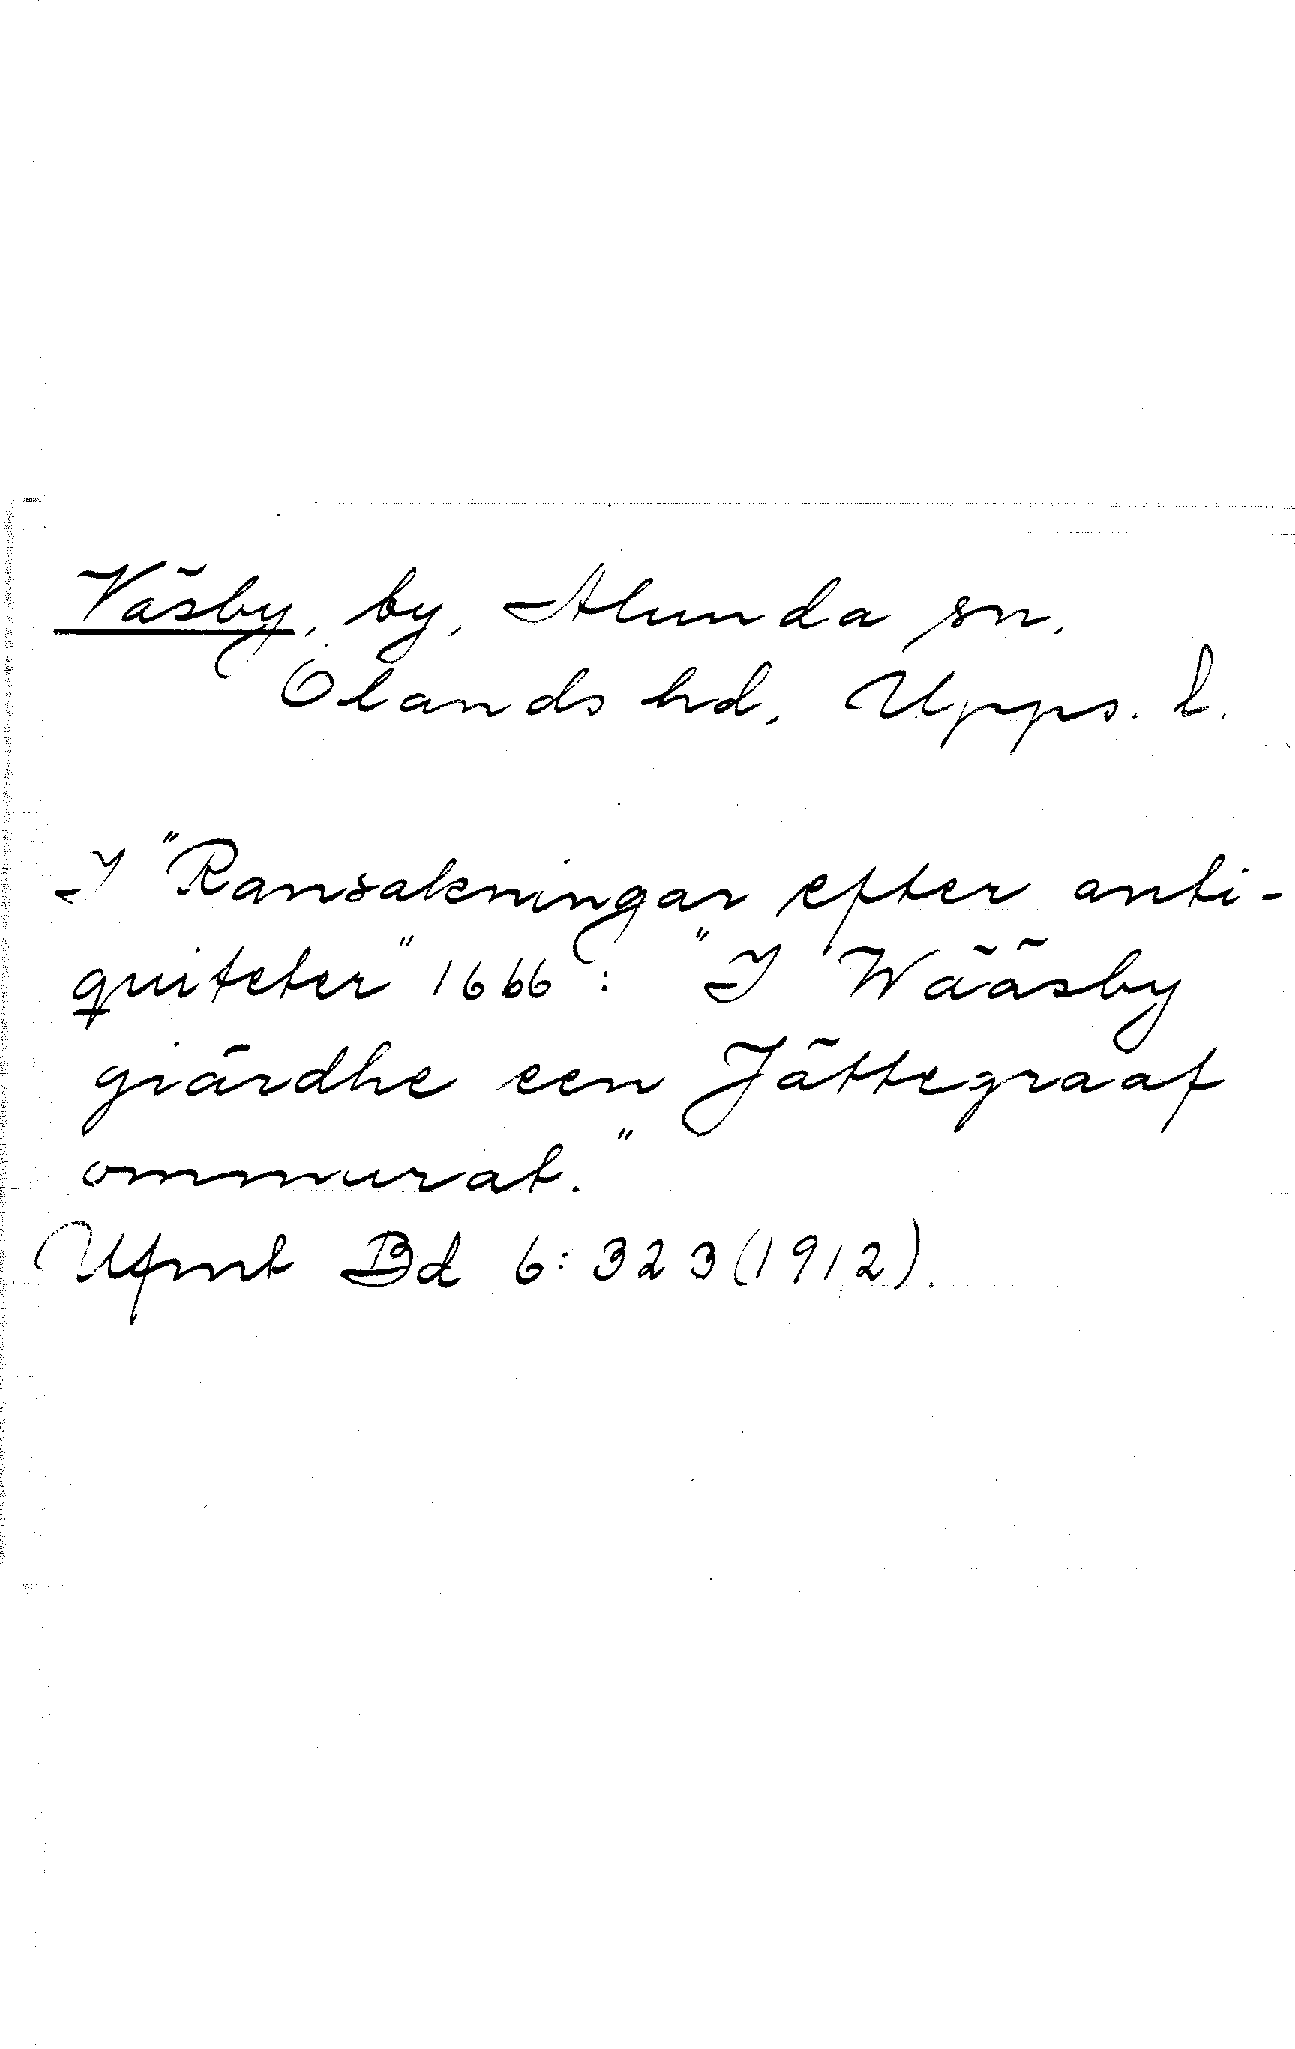 Väsby, by, Alunda sn,
Olands hd, Upps. l.
I "Ransakningar efter anti-
quiteter" 1666: "I Wääsby
giärdhe een Jättegraaf
ommurat."
Ufmt Bd 6:323(1912).